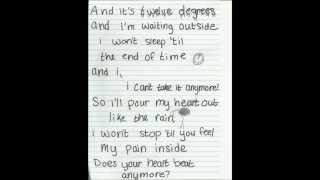 And it's twelve degrees
and I'm waiting outside
i won't sleep 'til
the end of time
and i,
i can't take it anymore!
So i'll pour my heart out
like the rain,
i won't stop 'til you feel
My pain inside
Does your heart beat
anymore?